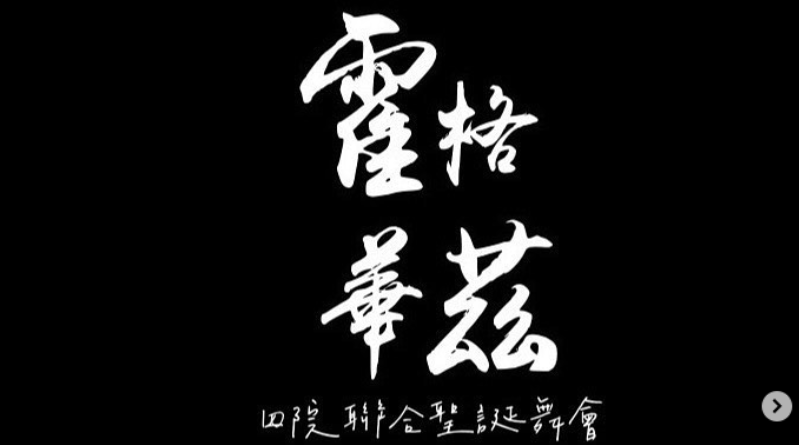 霍格
華茲
四院聯合聖誕舞會